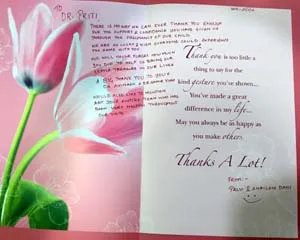 TO
DR. PRITI
THERE IS NO WAY WE CAN EVER THANK YOU ENOUGH
FOR THE SUPPORT & CONFIDENCE YOU HAVE GIVEN US
THROUGH THE PREGNANCY OF OUR CHILD.
WE ARE SO LUCKY
THE SAME WITH YOU.
WE WILL NEVER FORGET HOW MUCH
YOU DID TO HELP US BRING OUR
LITTLE TREASURE IN OUR LIVES
A BIG THANK YOU TO YOU
WOULD ALSO LIKE TO MENTION
YOUR ENTIRE TEAM WHO HAS
BEEN VERY HELPFUL THROUGHOUT
OUR VISITS
Thank you is too little a
thing to say for the
kind gesture you've shown...
You've made a great
difference in my life...
May you always be as happy as
you make others.
Thanks A Lot!
FROM:-